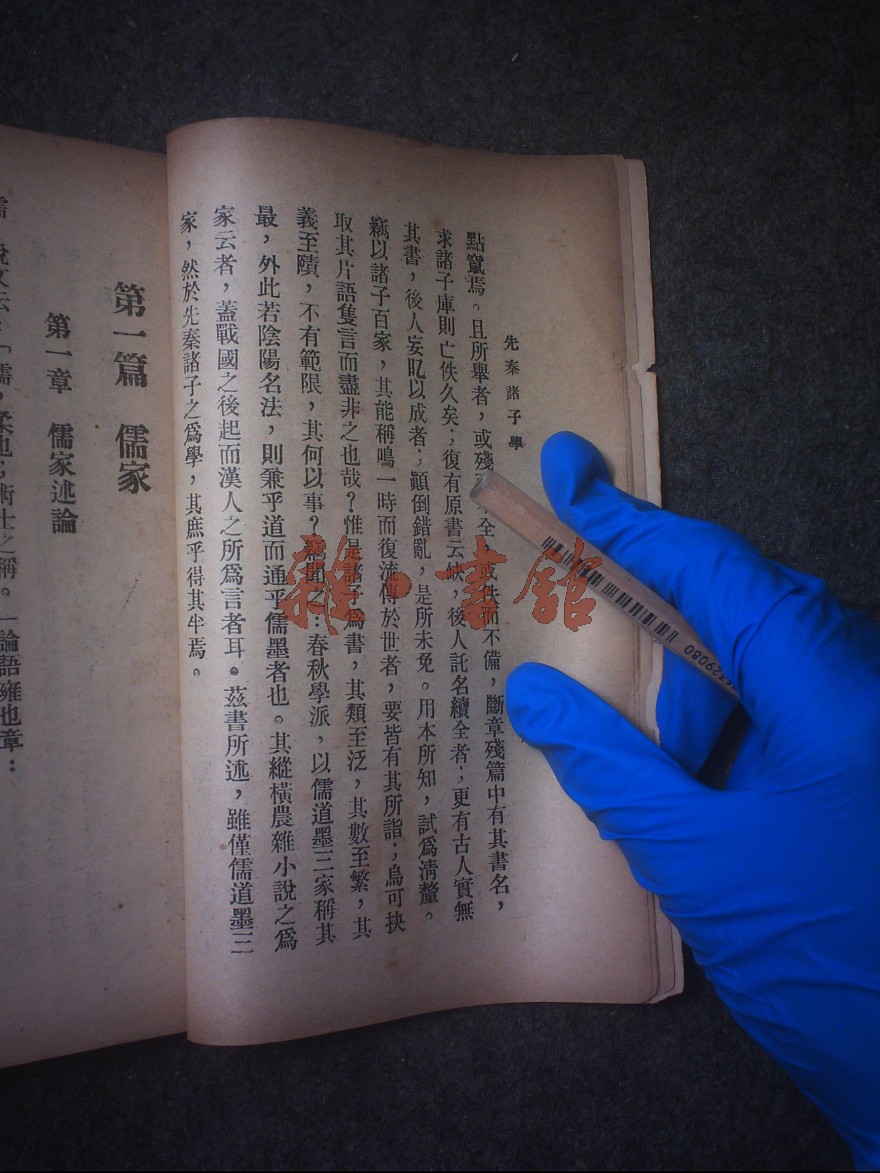 先秦諸子學
點竄焉。且所舉者，或殘全，或佚而不備，斷章殘篇中有其書名，
求諸子庫則亡佚久矣；復有原書云缺，後人託名續全者；更有古人實無
其書，後人妄以成者；顚倒錯亂，是所未免。用本所知，試爲淸釐。
竊以諸子百家，其能稱鳴一時而復流傳於世者，要皆有其所詣；烏可抉
取其片語隻言而盡非之也哉？惟是諸子爲書，其類至泛，其數至繁，其
義至賾，不有範限，其何以事？竊聞之：春秋學派，以儒道墨三家稱其
最，外此若陰陽名法，則兼乎道而通乎儒墨者也。其縱橫農雜小說之爲
家云者，蓋戰國之後起而漢人之所爲言者耳。茲書所述，雖僅儒道墨三
家，然於先秦諸子之爲學，其庶乎得其半焉。
第一篇 儒家
第一章 儒家述論
說文云：「儒，柔也；術士之稱。」論語雍也章：
雜·書館
9080